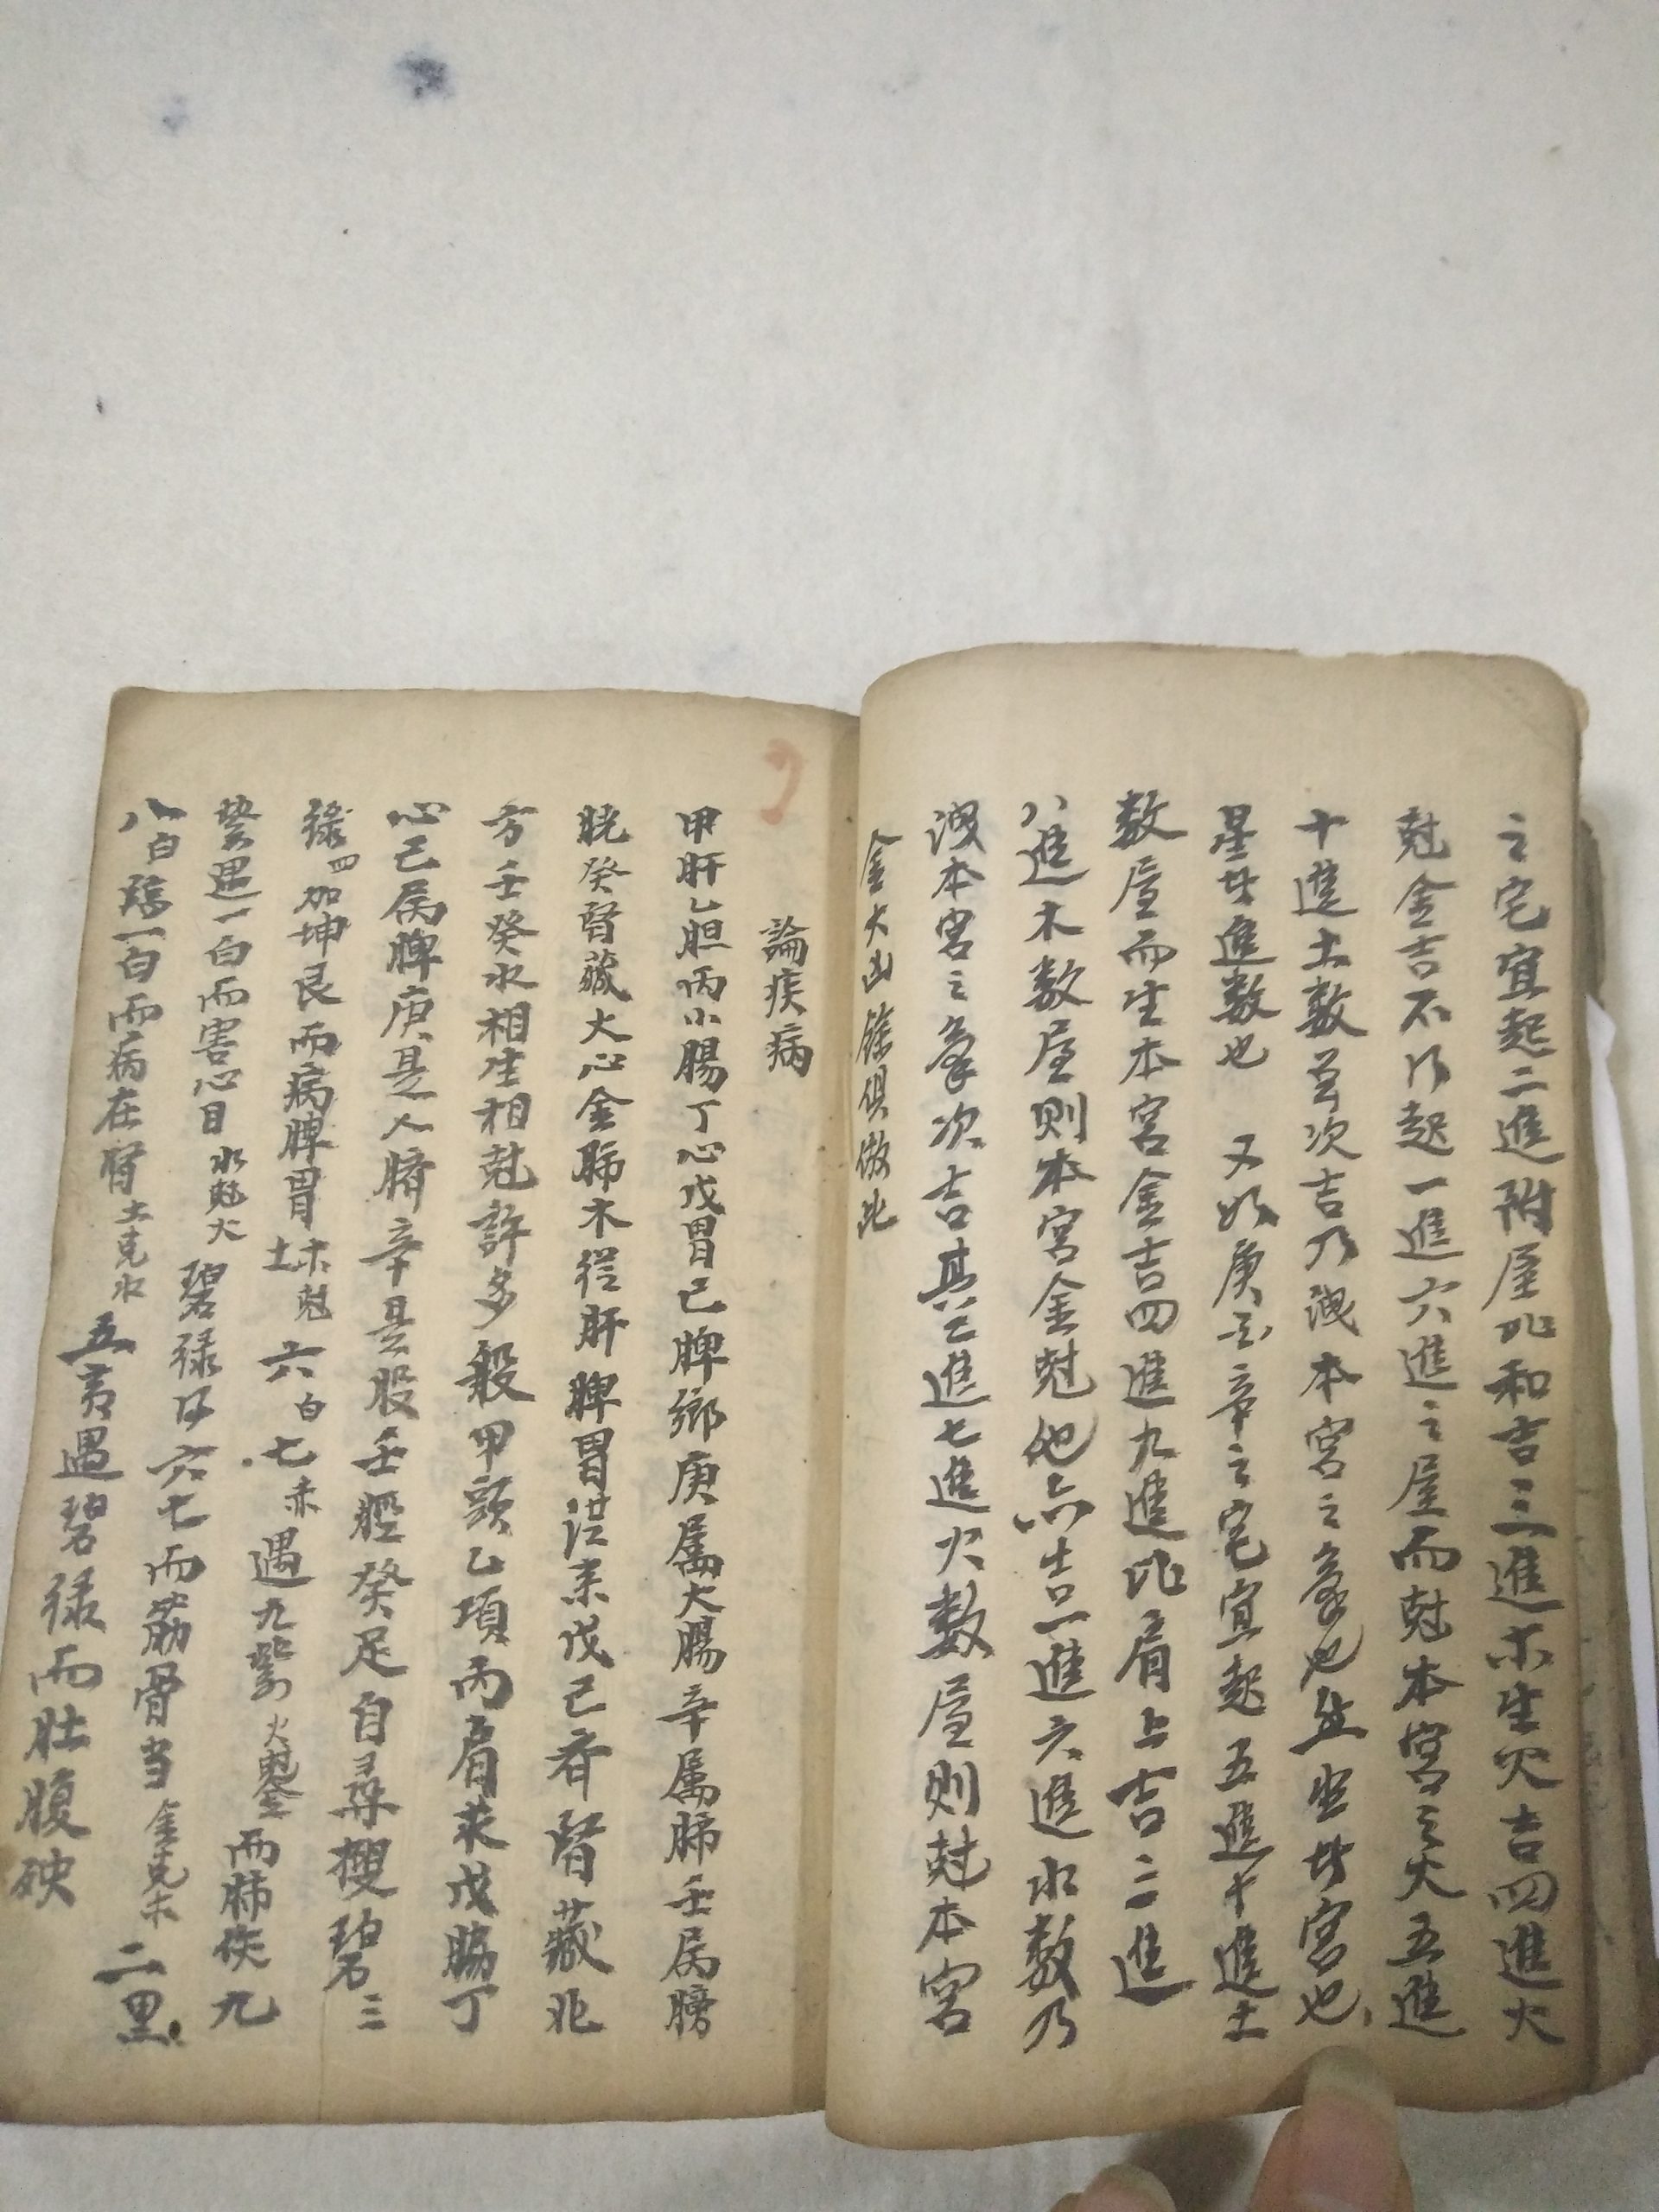 之宅宜起二進附屋比和吉三進木生火吉四進火
尅金吉不可起一進六進之屋而尅本宮之火五進
十進土数呈次吉乃洩本宮之氣也坐星坐宮也
星坐進数也 又如庚 辛之宅宜起五進十進土
数屋而生本宮金吉四進九進比肩上吉三進
八進木数屋则本宮金尅他亦吉一進六進水数乃
洩本宮之氣次吉其二進七進火数屋则尅本宮
金大凶餘俱倣此
論疾病
甲肝乙胆丙小腸丁心戊胃己脾鄉庚属大腸辛属肺壬属膀
胱癸腎藏火心金肺木從肝脾胃從来戊己存腎藏北
方壬癸水相生相尅許多般甲頭乙項丙肩求戊脇丁
心己属脾庚是人臍辛是股壬脛癸足自尋搜碧三
禄四加坤艮而病脾胃木尅土六白七赤遇九紫火尅金而肺疾九
紫遇一白而害心目水尅火碧禄同六七而筋骨当金克木二黑
八白臨一白而病在腎土克水五黄遇碧禄而肚腹殃